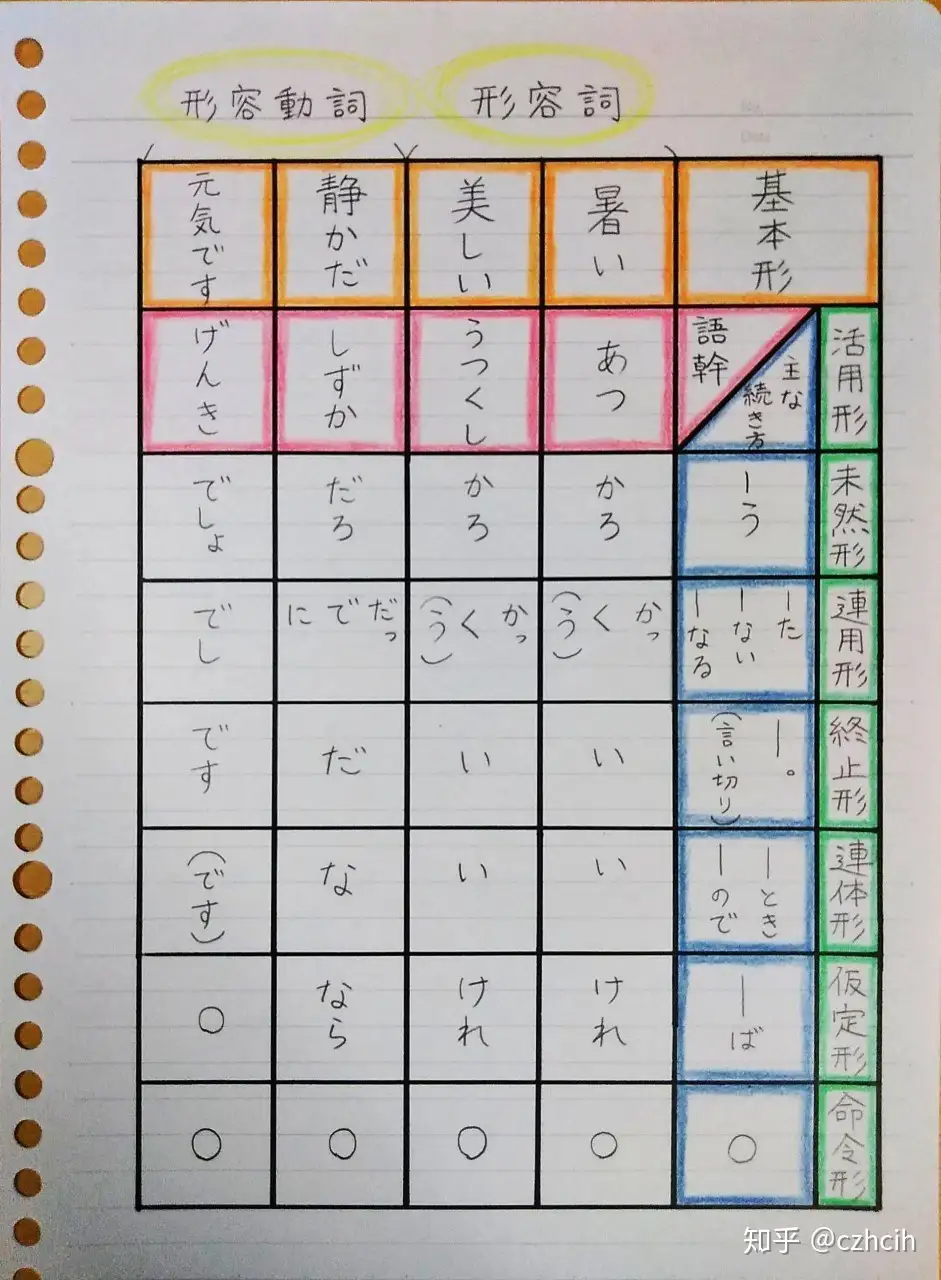 形容動詞
形容詞
基本形
暑い
美しい
静かだ
元気です
活用形
主な
続き方
語幹
あつ
うつくし
しずか
げんき
未然形
ーう
かろ
かろ
だろ
でしょ
連用形
ーた
ーない
ーなる
かっ
く
(う)
かっ
く
(う)
だっ
で
に
でし
終止形
ー。
(言い切り)
い
い
だ
です
連体形
ーとき
ーので
い
い
な
(です)
仮定形
ーば
けれ
けれ
なら
○
命令形
○
○
○
○
○
知乎 @czhcih